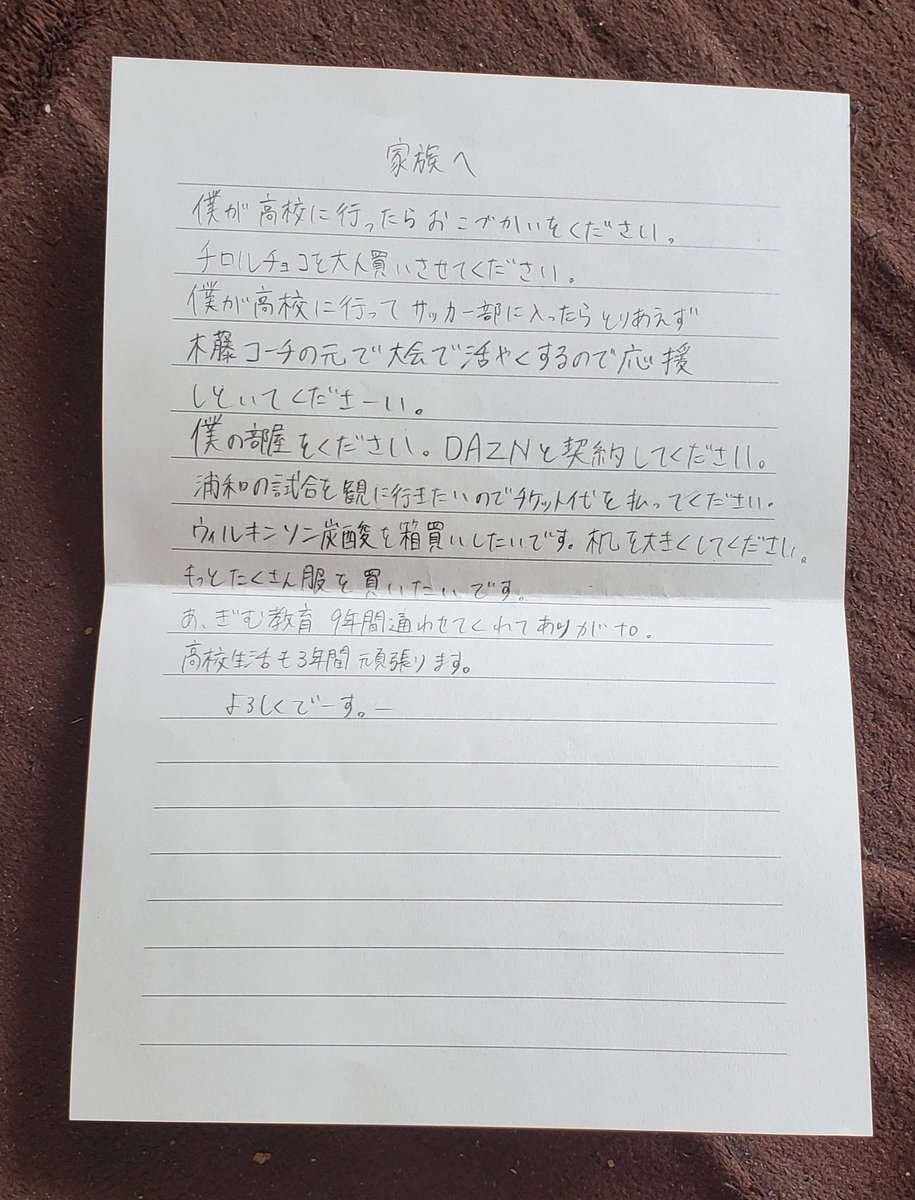 家族へ
僕が高校に行ったらおこづかいをください。
チロルチョコを大人買いさせてください。
僕が高校に行ってサッカー部に入ったらとりあえず
木藤コーチの元で大会で活やくするので応援
しといてくださーい。
僕の部屋をください。DAZNと契約してください。
浦和の試合を観に行きたいのでチケット代を払ってください。
ウィルキンソン炭酸を箱買いしたいです。机を大きくしてください。
もっとたくさん服を買いたいです。
あ、ぎむ教育9年間通わせてくれてありがナロ。
高校生活も3年間頑張ります。
よろしくでーす。ー